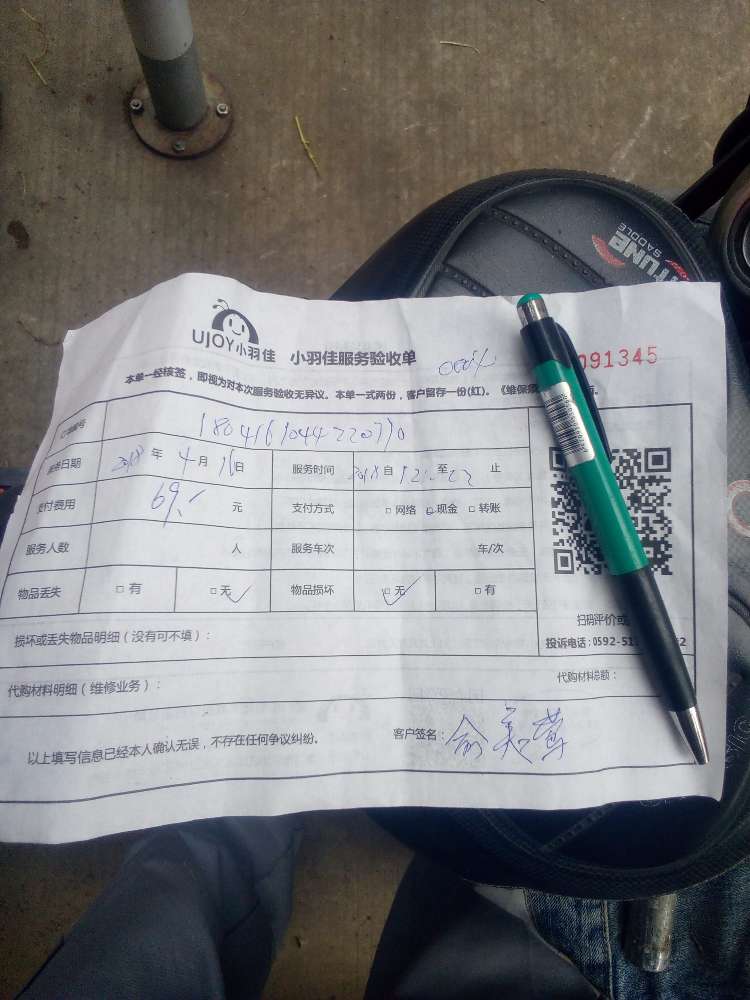 UJOY小羽佳 小羽佳服务验收单 091345
本单一经核签，即视为对本次服务验收无异议。本单一式两份，客户留存一份(红)。《维保
编号
日期 2018 年 4 月 16 日 服务时间 自 至 止
支付费用 69 元 支付方式 □ 网络 □ 现金 □ 转账
服务人数 人 服务车次 车/次
物品丢失 □ 有 □ 无 物品损坏 □ 无 □ 有
扫码评价或
损坏或丢失物品明细（没有可不填）： 投诉电话：0592-51
代购材料明细（维修业务）： 代购材料总额：
以上填写信息已经本人确认无误，不存在任何争议纠纷。 客户签名：
TUNE
SADDLE